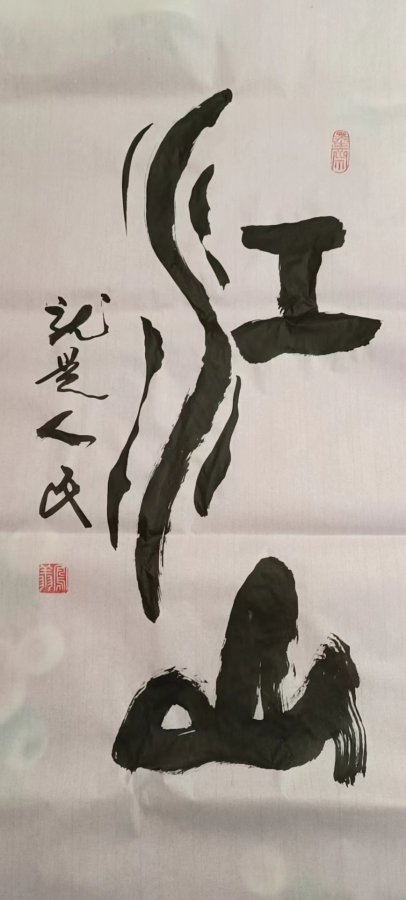 江山
就是人民